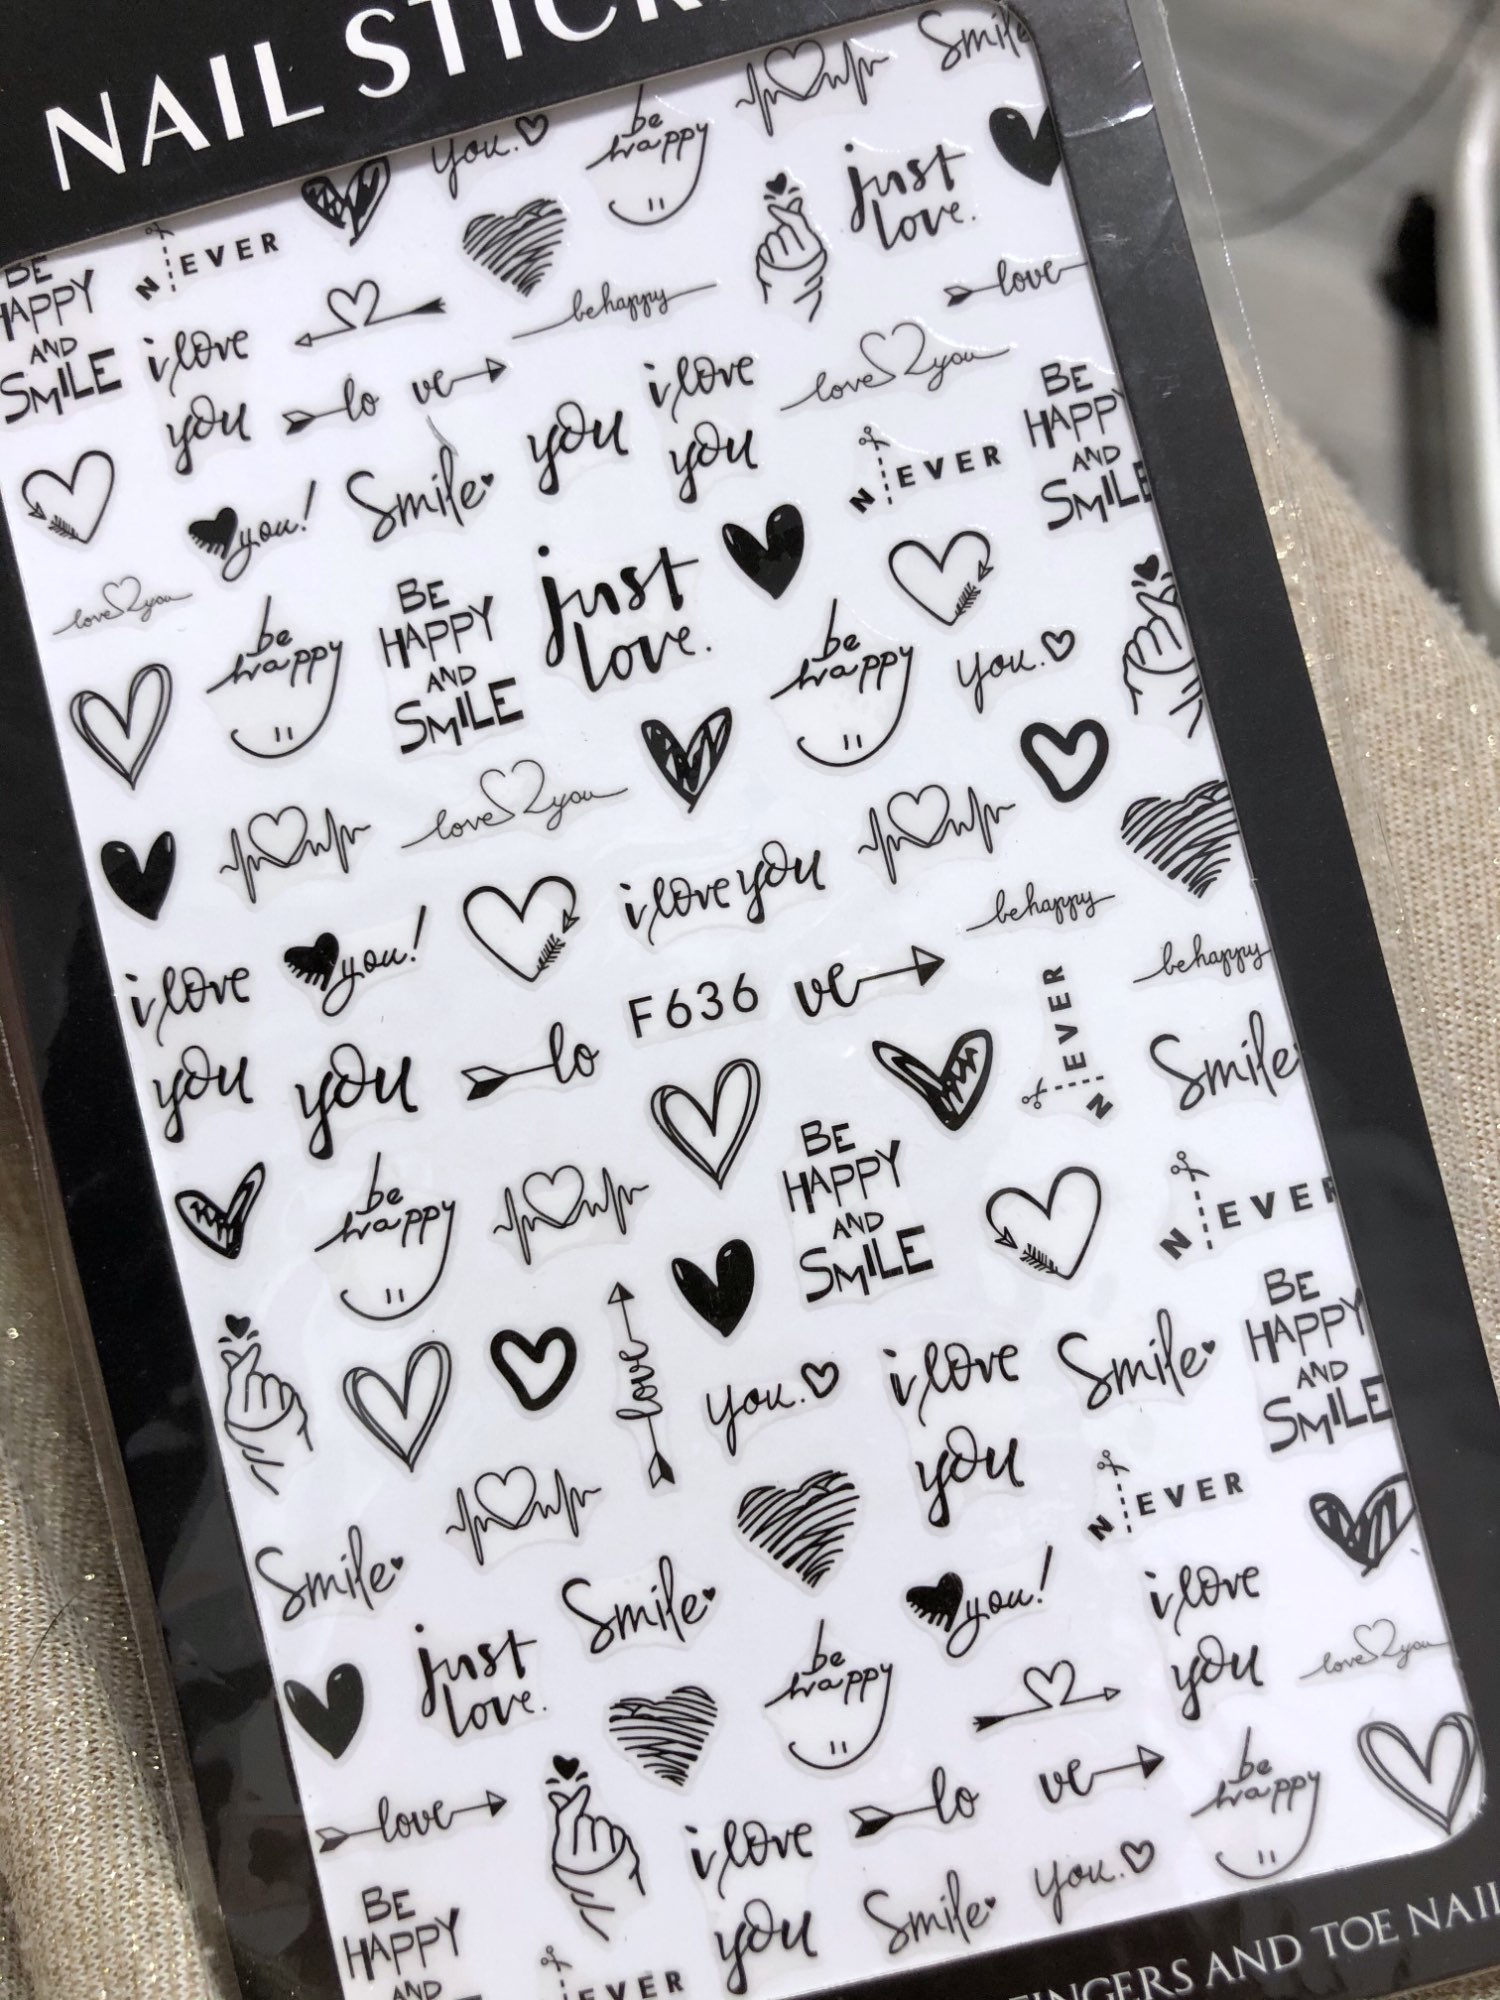 NAIL STICK
Smile
you.
be
happy
just
love.
N EVER
BE
HAPPY
AND
SMILE
i love
you
be happy
love
lo ve
you
i love
you
love you
BE
HAPPY
AND
SMILE
N EVER
you!
Smile
love you
be
happy
BE
HAPPY
AND
SMILE
just
love.
be
happy
you.
love you
i love you
be happy
i love
you
you!
F636
ve
be happy
you
lo
N EVER
Smile
be
happy
BE
HAPPY
AND
SMILE
N EVER
love
you.
i love
you
Smile
BE
HAPPY
AND
SMILE
Smile
Smile
N EVER
you!
i love
you
just
love.
be
happy
love you
love
lo
ve
be
happy
i love
you
Smile
you.
BE
HAPPY
AND
EVER
FINGERS AND TOE NAIL